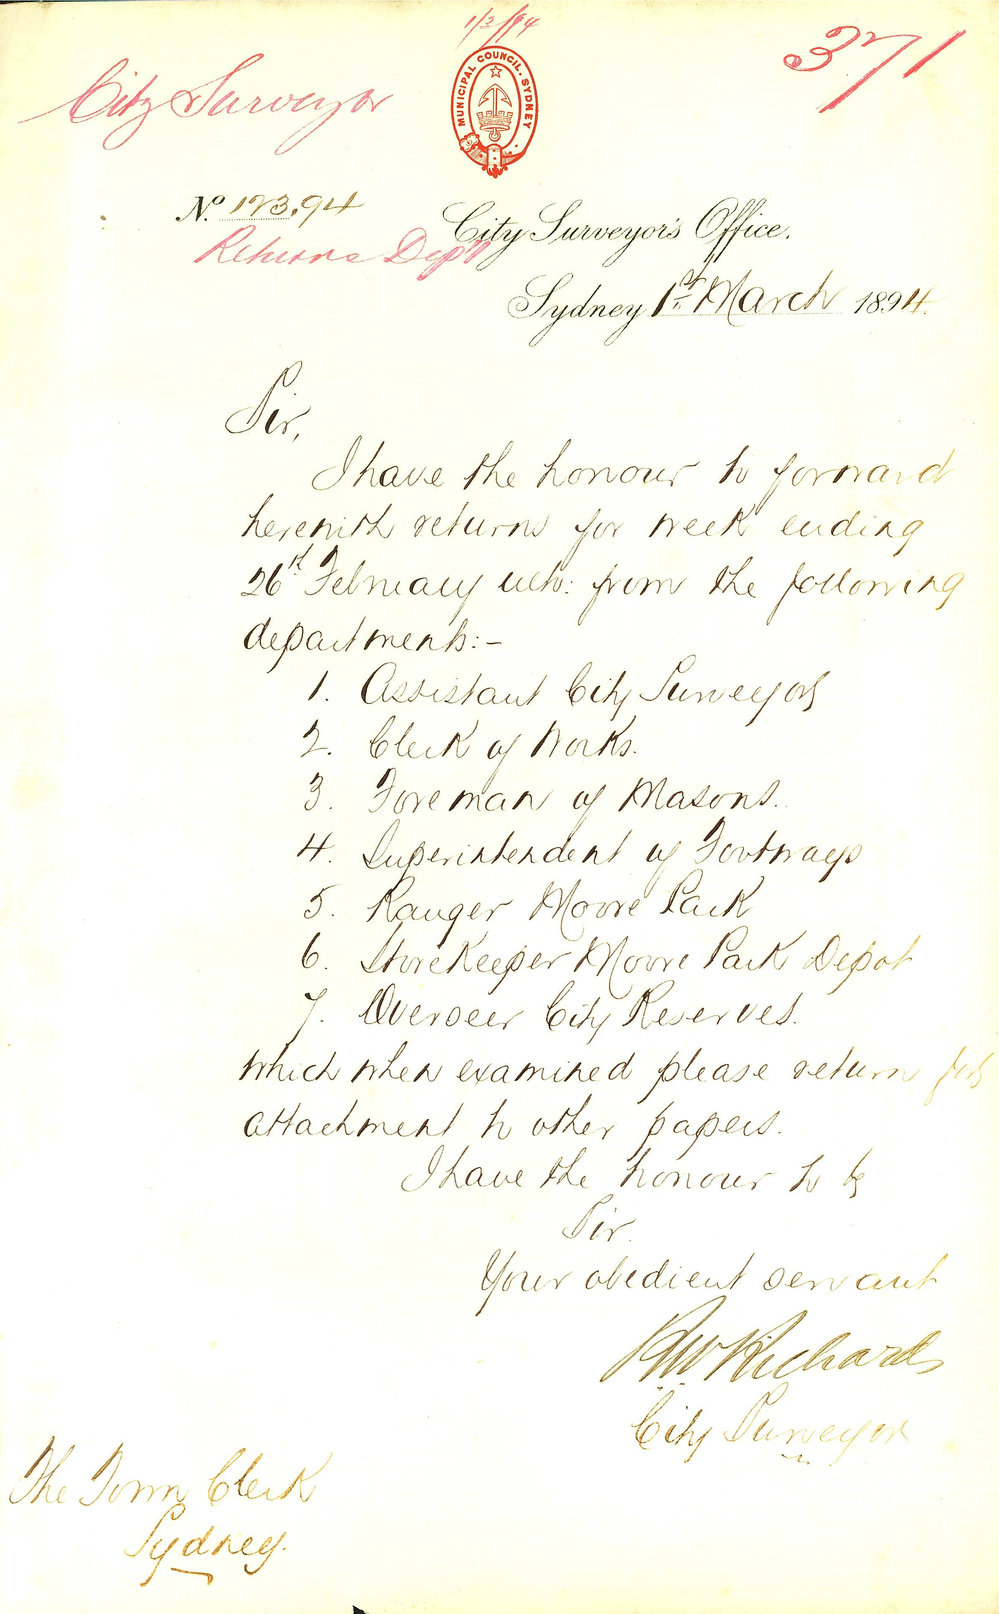 1/3/94
371
City Surveyor
MUNICIPAL COUNCIL. SYDNEY
No. 123.94
City Surveyor's Office.
Returns Dept
Sydney 1st March 1894.
Sir,
I have the honour to forward
herewith returns for week ending
26th February ulto: from the following
departments:-
1. Assistant City Surveyor
2. Clerk of Works.
3. Foreman of Masons.
4. Superintendent of Footways
5. Ranger Moore Park
6. Storekeeper Moore Park Depot
7. Overseer City Reserves.
which when examined please return for
attachment to other papers.
I have the honour to be
Sir.
Your obedient servant
RW Richards
City Surveyor
The Town Clerk
Sydney.